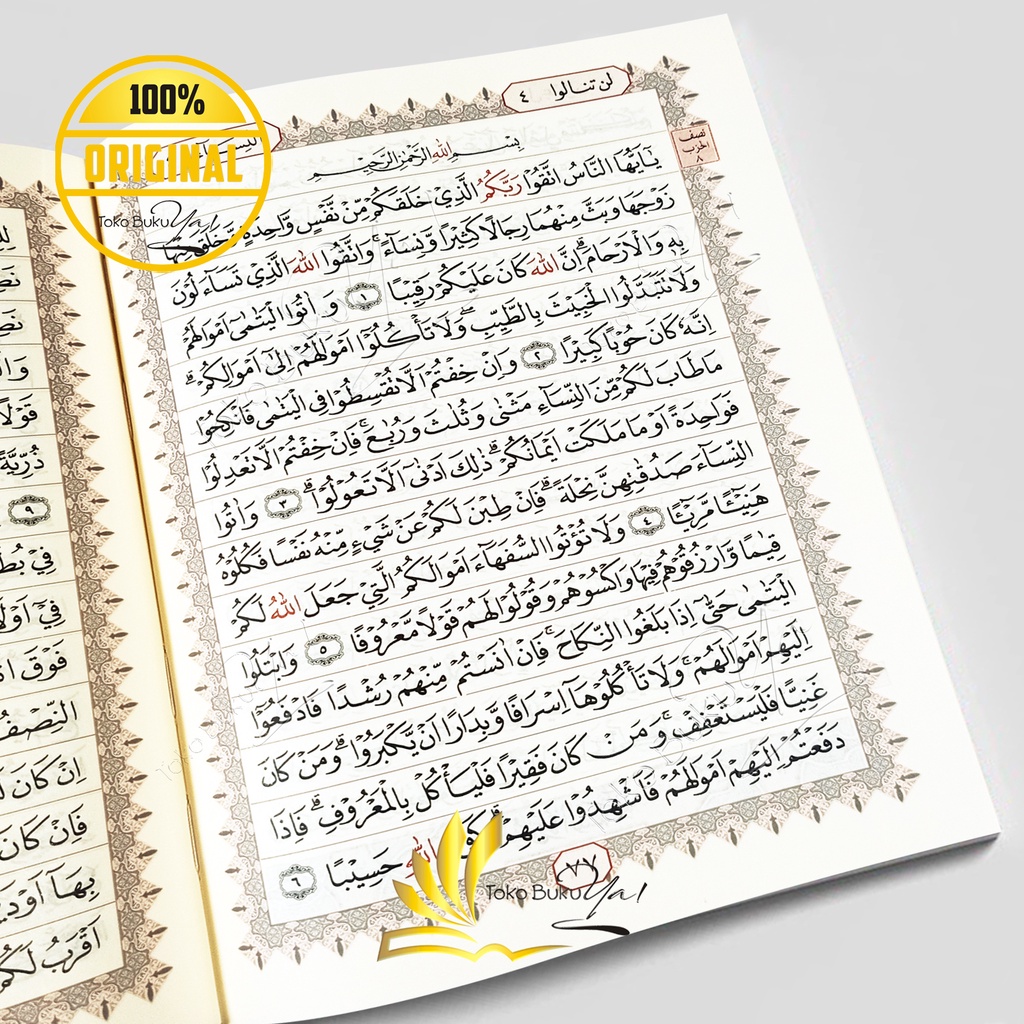 100%
ORIGINAL
Toko Buku Yal
لن تنالوا ٤
نصف الحزب ٨
بِسْمِ اللّٰهِ الرَّحْمٰنِ الرَّحِيْمِ
يٰٓاَيُّهَا النَّاسُ اتَّقُوْا رَبَّكُمُ الَّذِيْ خَلَقَكُمْ مِّنْ نَّفْسٍ وَّاحِدَةٍ وَّخَلَقَ مِنْهَا
زَوْجَهَا وَبَثَّ مِنْهُمَا رِجَالًا كَثِيْرًا وَّنِسَاۤءً ۚ وَاتَّقُوا اللّٰهَ الَّذِيْ تَسَاۤءَلُوْنَ
بِهٖ وَالْاَرْحَامَ ۗ اِنَّ اللّٰهَ كَانَ عَلَيْكُمْ رَقِيْبًا ١ وَاٰتُوا الْيَتٰمٰٓى اَمْوَالَهُمْ
وَلَا تَتَبَدَّلُوا الْخَبِيْثَ بِالطَّيِّبِ ۖ وَلَا تَأْكُلُوْٓا اَمْوَالَهُمْ اِلٰٓى اَمْوَالِكُمْ ۗ
اِنَّهٗ كَانَ حُوْبًا كَبِيْرًا ٢ وَاِنْ خِفْتُمْ اَلَّا تُقْسِطُوْا فِى الْيَتٰمٰى فَانْكِحُوْا
مَا طَابَ لَكُمْ مِّنَ النِّسَاۤءِ مَثْنٰى وَثُلٰثَ وَرُبٰعَ ۚ فَاِنْ خِفْتُمْ اَلَّا تَعْدِلُوْا
فَوَاحِدَةً اَوْ مَا مَلَكَتْ اَيْمَانُكُمْ ۗ ذٰلِكَ اَدْنٰٓى اَلَّا تَعُوْلُوْا ۗ ٣ وَاٰتُوا
النِّسَاۤءَ صَدُقٰتِهِنَّ نِحْلَةً ۗ فَاِنْ طِبْنَ لَكُمْ عَنْ شَيْءٍ مِّنْهُ نَفْسًا فَكُلُوْهُ
هَنِيْۤـًٔا مَّرِيْۤـًٔا ٤ وَلَا تُؤْتُوا السُّفَهَاۤءَ اَمْوَالَكُمُ الَّتِيْ جَعَلَ اللّٰهُ لَكُمْ
قِيٰمًا وَّارْزُقُوْهُمْ فِيْهَا وَاكْسُوْهُمْ وَقُوْلُوْا لَهُمْ قَوْلًا مَّعْرُوْفًا ٥ وَابْتَلُوا
الْيَتٰمٰى حَتّٰىٓ اِذَا بَلَغُوا النِّكَاحَ ۚ فَاِنْ اٰنَسْتُمْ مِّنْهُمْ رُشْدًا فَادْفَعُوْٓا
اِلَيْهِمْ اَمْوَالَهُمْ ۚ وَلَا تَأْكُلُوْهَآ اِسْرَافًا وَّبِدَارًا اَنْ يَّكْبَرُوْا ۗ وَمَنْ كَانَ
غَنِيًّا فَلْيَسْتَعْفِفْ ۚ وَمَنْ كَانَ فَقِيْرًا فَلْيَأْكُلْ بِالْمَعْرُوْفِ ۗ فَاِذَا
دَفَعْتُمْ اِلَيْهِمْ اَمْوَالَهُمْ فَاَشْهِدُوْا عَلَيْهِمْ ۗ وَكَفٰى بِاللّٰهِ حَسِيْبًا ٦
٧٧
Toko Buku Yal
قَوْلًا
ذُرِّيَّةً
٩
فِيْ
فِيْٓ
فَوْقَ
النِّصْفُ
اِنْ كَانَ
فَاِنْ كَانَ
بِهَآ اَوْ
اَقْرَبُ